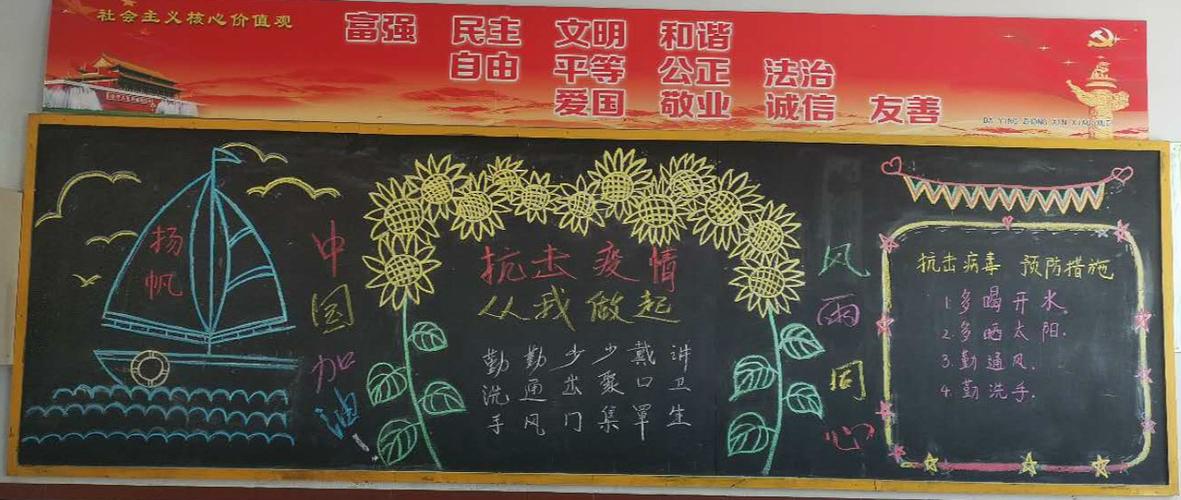 社会主义核心价值观
富强 民主 文明 和谐
自由 平等 公正 法治
爱国 敬业 诚信 友善
扬帆
中国加油
抗击疫情
从我做起
勤洗手
勤通风
少出门
少聚集
戴口罩
讲卫生
风雨同心
抗击病毒 预防措施
1.多喝开水.
2.多晒太阳.
3.勤通风.
4.勤洗手.